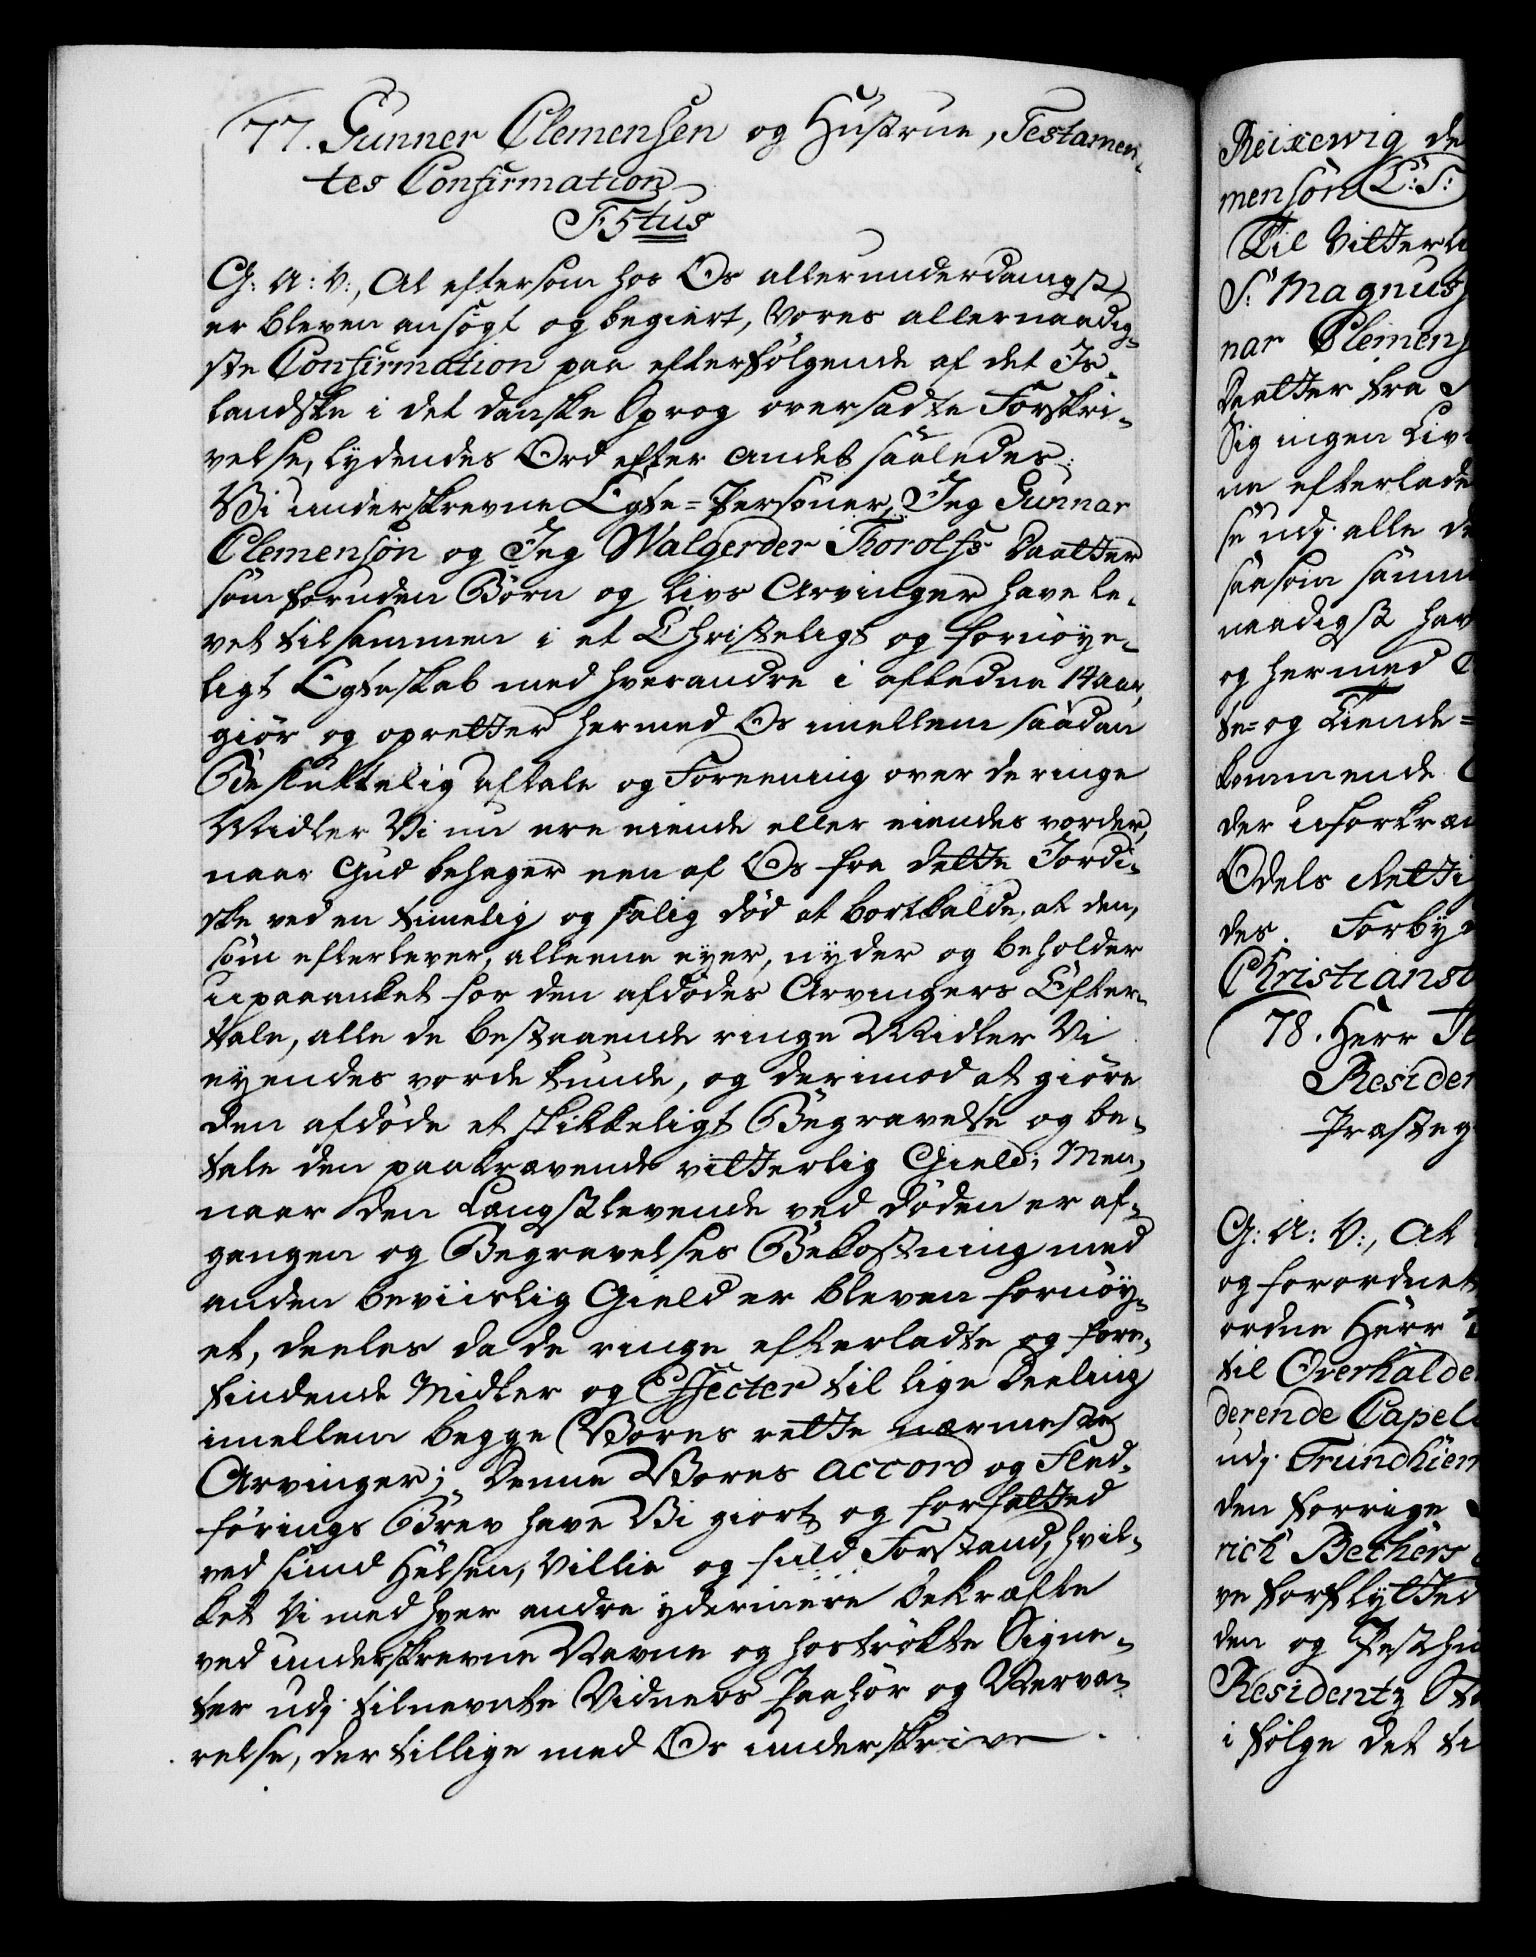 77. Gunner Clemensen og Hustrue, Testamen-
tes Confirmation
F5tus
G: A: V:, At eftersom hos Os allerunderdanigst
er bleven ansøgt og begiert, Vores allernaadig-
ste Confirmation paa efterfølgende af det Is-
landske i det danske Sprog oversadte Forskri-
velse, lydendes Ord efter andet saaledes:
Vi underskrevne Egte-Personer, Jeg Gunnar
Clemensøn og Jeg Walgerder Thorolfs Daatter
som foruden Børn og livs Arvinger have le-
vet tilsammen i et Christeligt og fornøye-
ligt Egteskab med hverandre i afledne 14 aar,
giør og opretter hermed Os imellem saadan
Besluttelig aftale og Foreening over de ringe
Midler Vi nu ere eiende eller eiendes vorder,
naar Gud behager een af Os fra dette Jordi-
ske ved en timelig og salig død at bortkalde, at den,
som efterlever, alleene eyer, nyder og beholder
upaaanket for den afdødes Arvingers Efter-
tale, alle de bestaaende ringe Midler Vi
eyendes vorde kunde, og derimod at giøre
den afdøde et skikkeligt Begravelse og be-
tale den paakrævende vitterlig Gield; Men,
naar den Længstlevende ved døden er af-
gangen og Begravelses Bekostning med
anden beviislig Gield er bleven fornøy-
et, deeles da de ringe efterladte og fore-
findende Midler og Effecter til lige Deeling
imellem begge Vores rette nærmeste
Arvinger; Denne Vores accord og Fled-
førings Brev have Vi giort og forfatted
ved sund Helsen, Villie og fuld Forstand, hvil-
ket Vi med hver andre ydermere bekræfte
ved underskrevne Navne og hostrøkte Signe-
ter udj tilnevnte Vidners Paahør og Nærvæ-
relse, der tillige med Os underskrive.
Reixewig de
mensøn L: S:
Til Vitterli
S. Magnus
nar Clemens
Daatter fra
Sig ingen Livs
ne efterlade
se udj alle de
saasom samme
naadigst hav
og hermed
te- og Tiende-
kommende
der uforkræn
Odels Retti
des. Forby
Christiansb
78. Herr
Residen
Præsteg
G: A: V:, At
og forordnet
ordne Herr
til Overhalde
derende Capel
udj Trundhiem
den forrige
rich Bechers
ve forflytted
den og Festhu
Residentz
i følge det ti